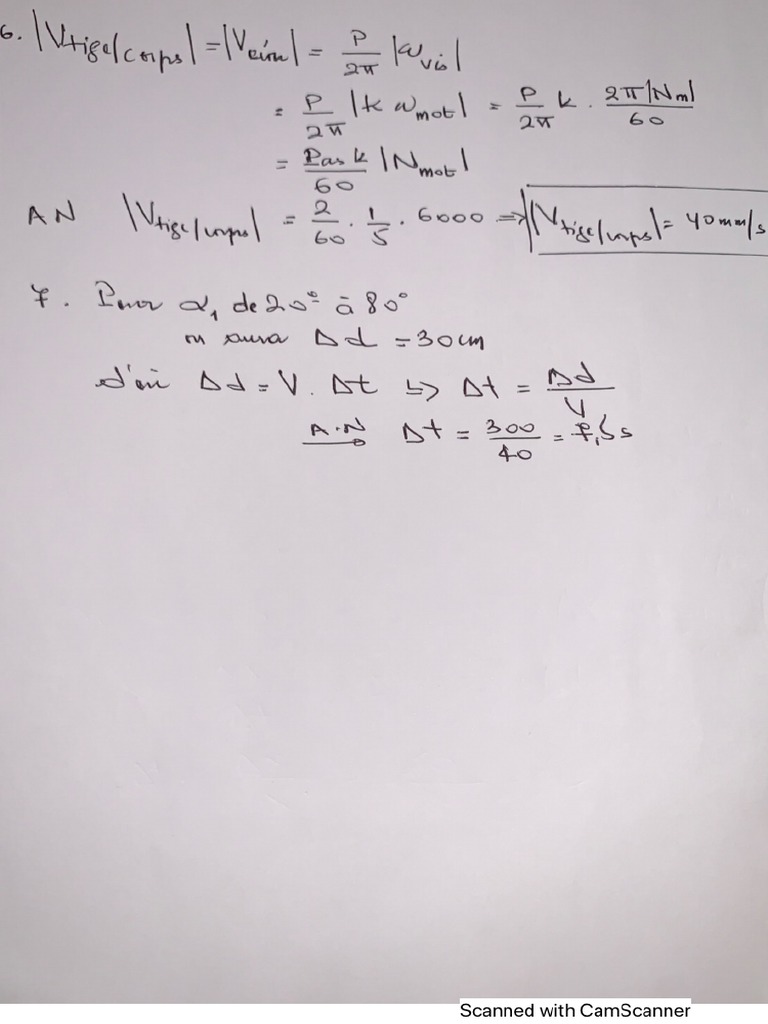 6. |Vtige/corps| = |Vécrou| = P/2π |ωvis|
= P/2π |k ωmot| = P/2π k . 2π|Nm|/60
= Pas k/60 |Nmot|
AN |Vtige/corps| = 2/60 . 1/5 . 6000 => |Vtige/corps| = 40mm/s
7. Pour α1 de 20° à 80°
on aura Δd = 30cm
d'où Δd = V . Δt ↳> Δt = Δd/V
A.N Δt = 300/40 = 7,5s
Scanned with CamScanner